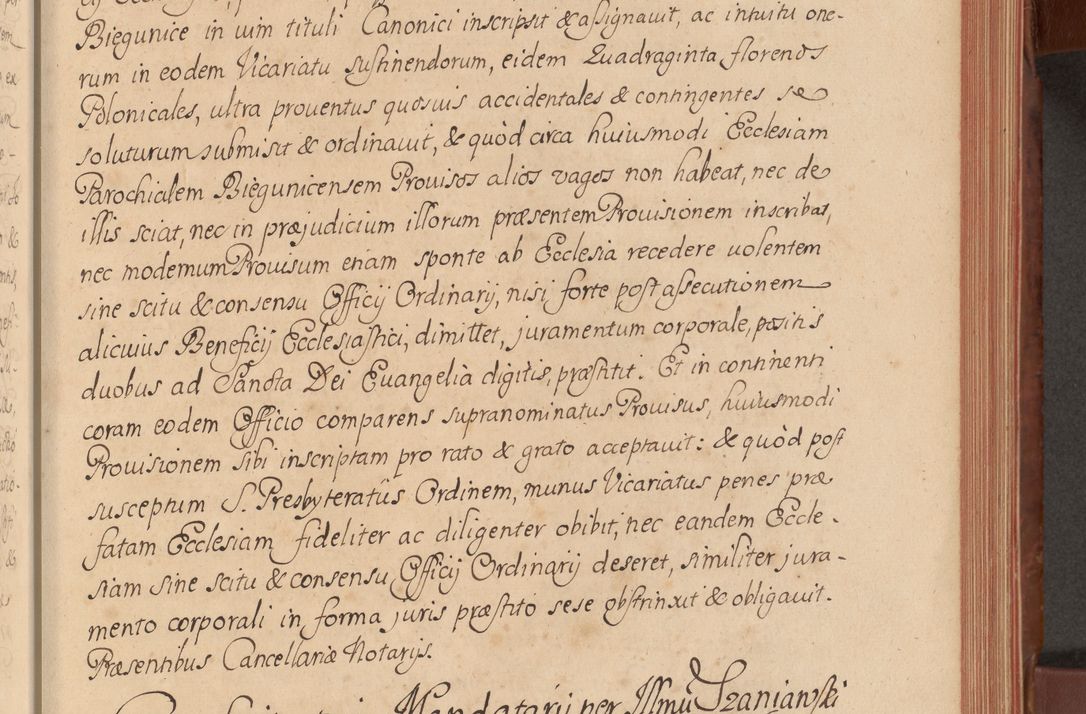 Biegunice in vim tituli Canonici inscripsit & assignavit, ac intuitu one-
rum in eodem Vicariatu sustinendorum, eidem Quadraginta florenos
Polonicales, ultra proventus quosvis accidentales & contingentes se
soluturum submisit & ordinavit, & quòd circa huiusmodi Ecclesiam
Parochialem Biegunicensem Provisos alios vagos non habeat, nec de
illis sciat, nec in præjudicium illorum præsentem Provisionem inscribat,
nec modernum Provisum etiam sponte ab Ecclesia recedere volentem
sine scitu & consensu Officij Ordinarij, nisi forte post assecutionem
alicuius Beneficij Ecclesiastici, dimittet, juramentum corporale, positis
duobus ad Sancta Dei Evangelia digitis, præstitit. Et in continenti
coram eodem Officio comparens supranominatus Provisus, huiusmodi
Provisionem sibi inscriptam pro rato & grato acceptavit: & quòd post
susceptum S. Presbyteratûs Ordinem, munus Vicariatus penes præ
fatam Ecclesiam fideliter ac diligenter obibit, nec eandem Eccle-
siam sine scitu & consensu Officij Ordinarij deseret, similiter jura-
mento corporali in forma juris præstito sese obstrinxit & obligavit.
Præsentibus Cancellariæ Notarijs.
Mandatarij per Illmũ Szaniawski